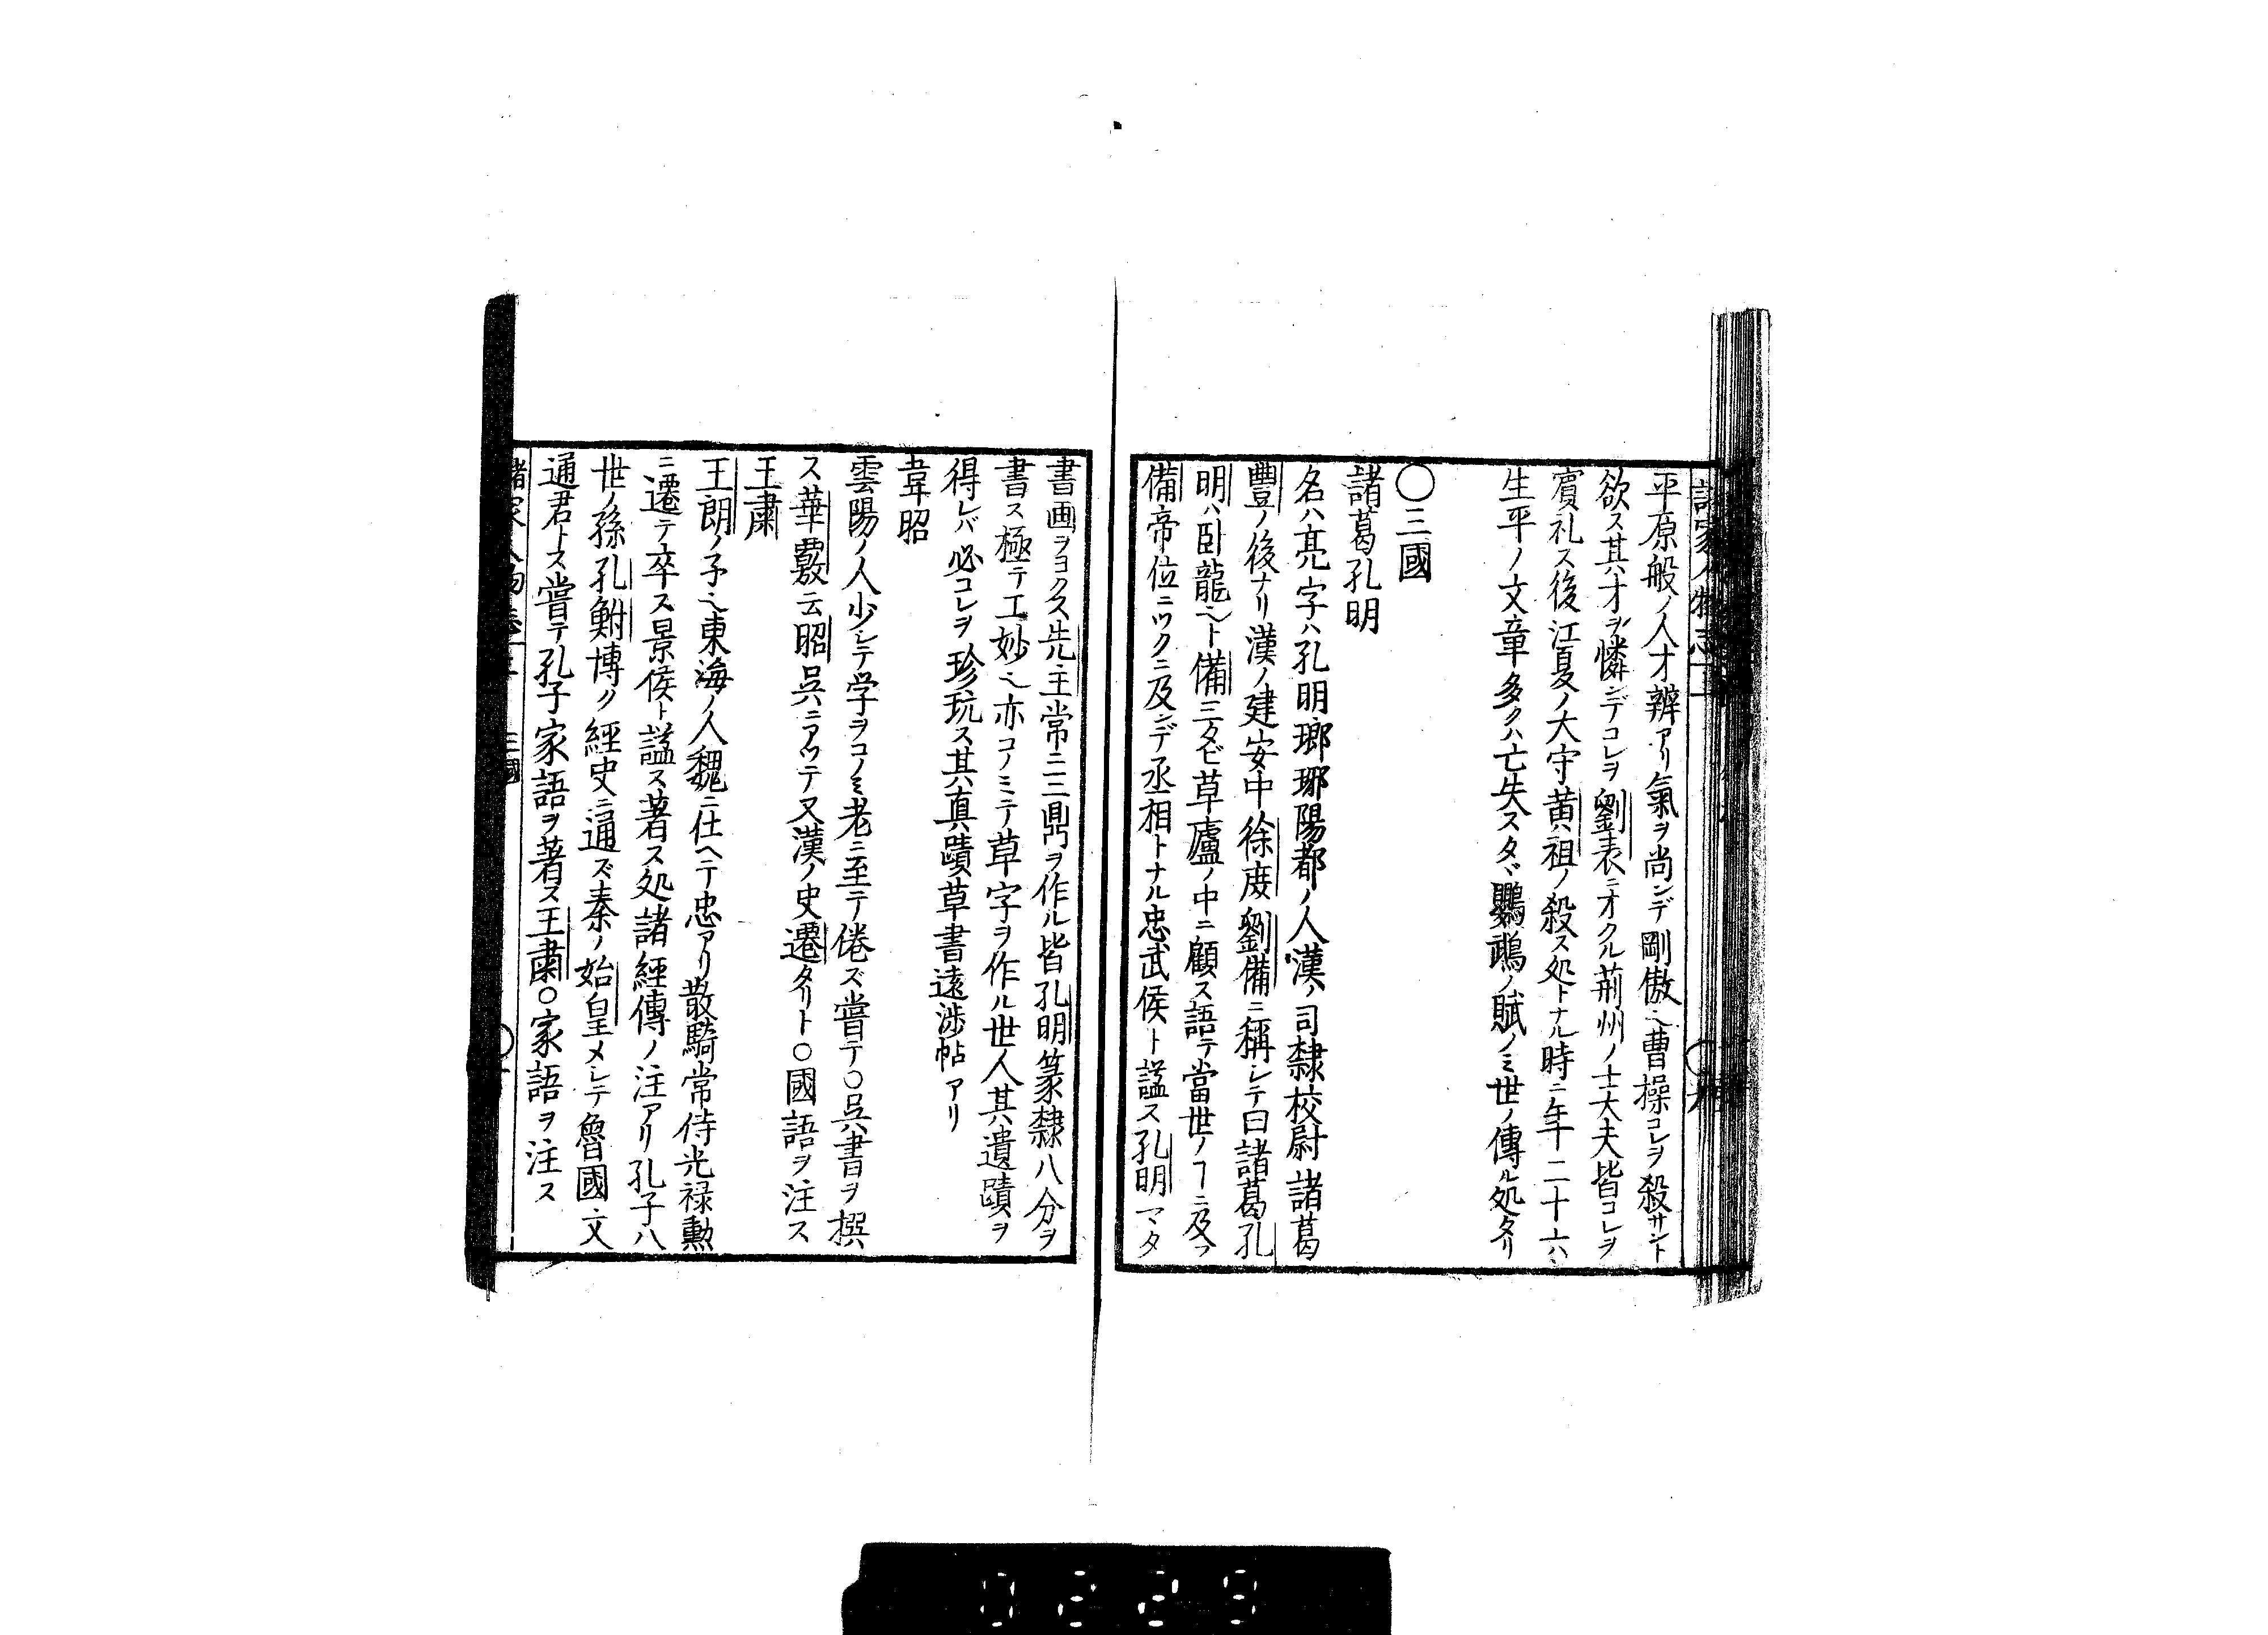 平原般ノ人才辨アリ氣ヲ尚ンデ剛傲也曹操コレヲ殺サント
欲ス其才ヲ憐ンデコレヲ劉表ニオクル荊州ノ士大夫皆コレヲ
賓礼ス後江夏ノ大守黄祖ノ殺ス処トナル時ニ年二十六
生平ノ文章多クハ亡失スタヾ鸚鵡ノ賦ノミ世ノ傳ル処タリ
〇三國
諸葛孔明
名ハ亮字ハ孔明瑯琊陽都ノ人漢ノ司隸校尉諸葛
豐ノ後ナリ漢ノ建安中徐庶劉備ニ稱シテ曰諸葛孔
明ハ臥龍也ト備三タビ草廬ノ中ニ顧ス語テ當世ノヿニ及フ
備帝位ニツクニ及ンデ丞相トナル忠武侯ト謚ス孔明マタ
書画ヲヨクス先主常ニ三鼎ヲ作ル皆孔明篆隸八分ヲ
書ス極テ工妙也亦コノミテ草字ヲ作ル世人其遺蹟ヲ
得レバ必コレヲ珍玩ス其真蹟草書遠渉帖アリ
韋昭
雲陽ノ人少シテ学ヲコノミ老ニ至テ倦ズ嘗テ〇呉書ヲ撰
ス華覈云昭呉ニアツテ又漢ノ史遷タリト〇國語ヲ注ス
王肅
王朗ノ子也東海ノ人魏ニ仕ヘテ忠アリ散騎常侍光禄勲
ニ遷テ卒ス景侯ト謚ス著ス処諸經傳ノ注アリ孔子八
世ノ孫孔鮒博ク經史ニ通ズ秦ノ始皇メシテ魯國文
通君トス嘗テ孔子家語ヲ著ス王肅〇家語ヲ注ス
三國